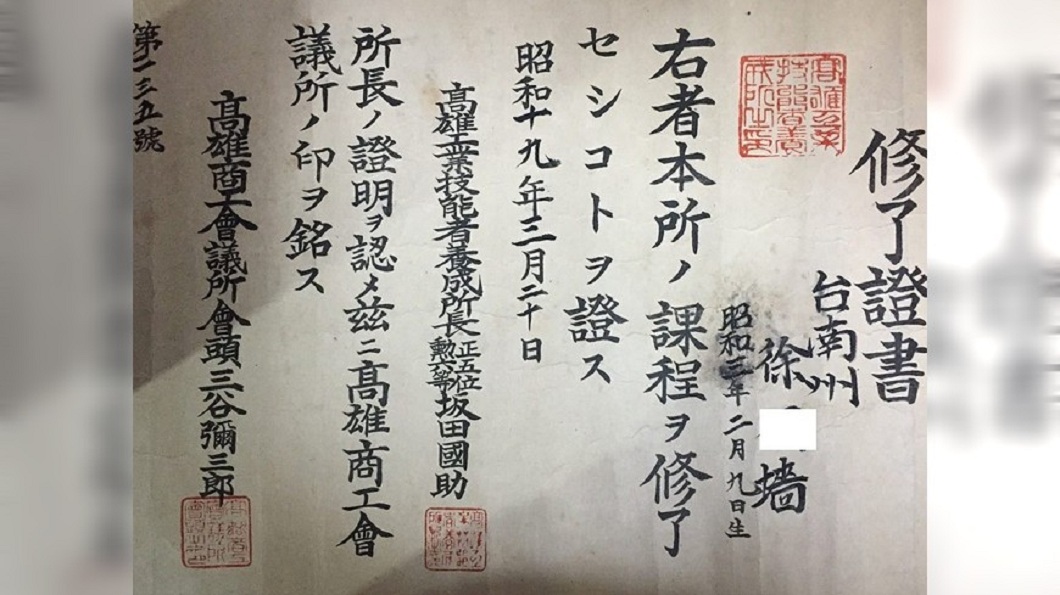 修了證書
台南州
徐
墻
昭和三年二月九日生
右者本所ノ課程ヲ修了
セシコトヲ證ス
昭和十九年三月二十日
高雄工業技能者養成所長正五位勲六等坂田國助
所長ノ證明ヲ認メ茲ニ高雄商工會
議所ノ印ヲ銘ス
高雄商工會議所會頭三谷彌三郎
第一三五號